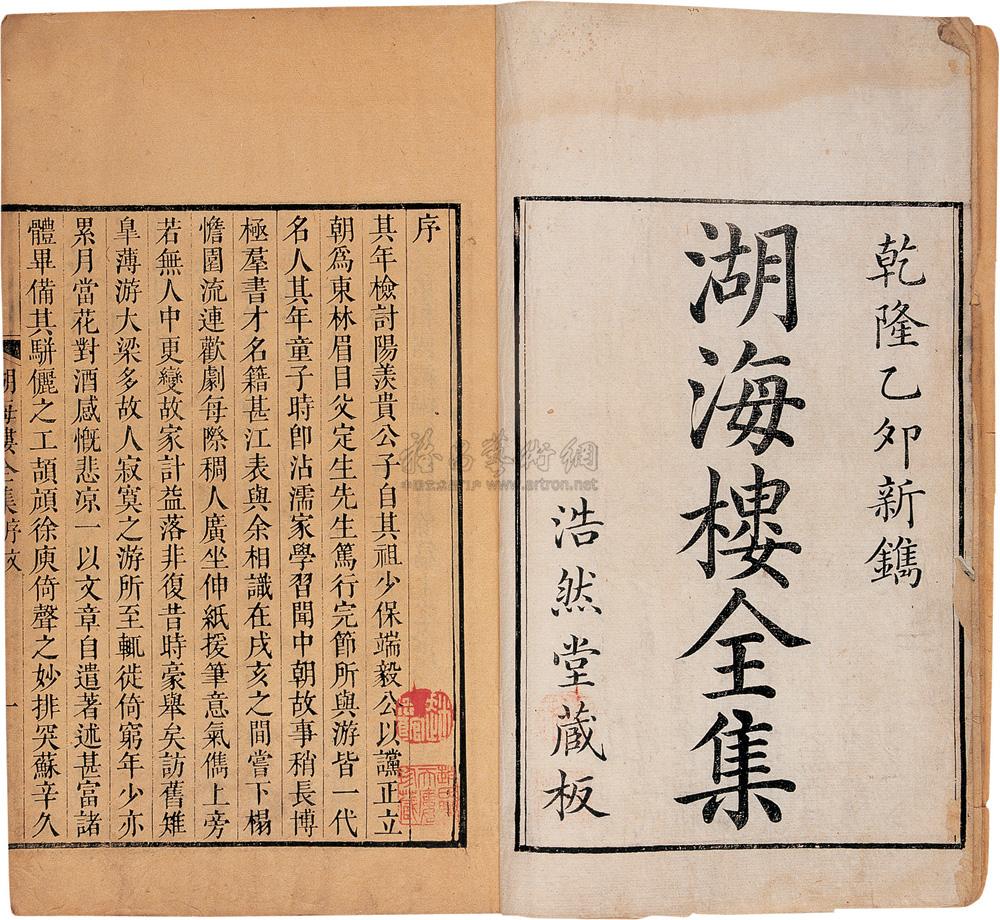 乾隆乙夘新鐫
湖海樓全集
浩然堂藏板
序
其年檢討陽羨貴公子自其祖少保端毅公以讜正立
朝爲東林眉目父定生先生篤行完節所與游皆一代
名人其年童子時卽沾濡家學習聞中朝故事稍長博
極羣書才名籍甚江表與余相識在戌亥之間嘗下榻
憺園流連歡劇每際稠人廣坐伸紙援筆意氣儁上旁
若無人中更變故家計益落非復昔時豪舉矣訪舊雉
臯薄游大梁多故人寂寞之游所至輒徙倚窮年少亦
累月當花對酒感慨悲凉一以文章自遣著述甚富諸
體畢備其駢儷之工頡頏徐庾倚聲之妙排突蘇辛久
湖海樓全集序文
一
雅昌藝術網
中国艺术品门户 www.artron.net